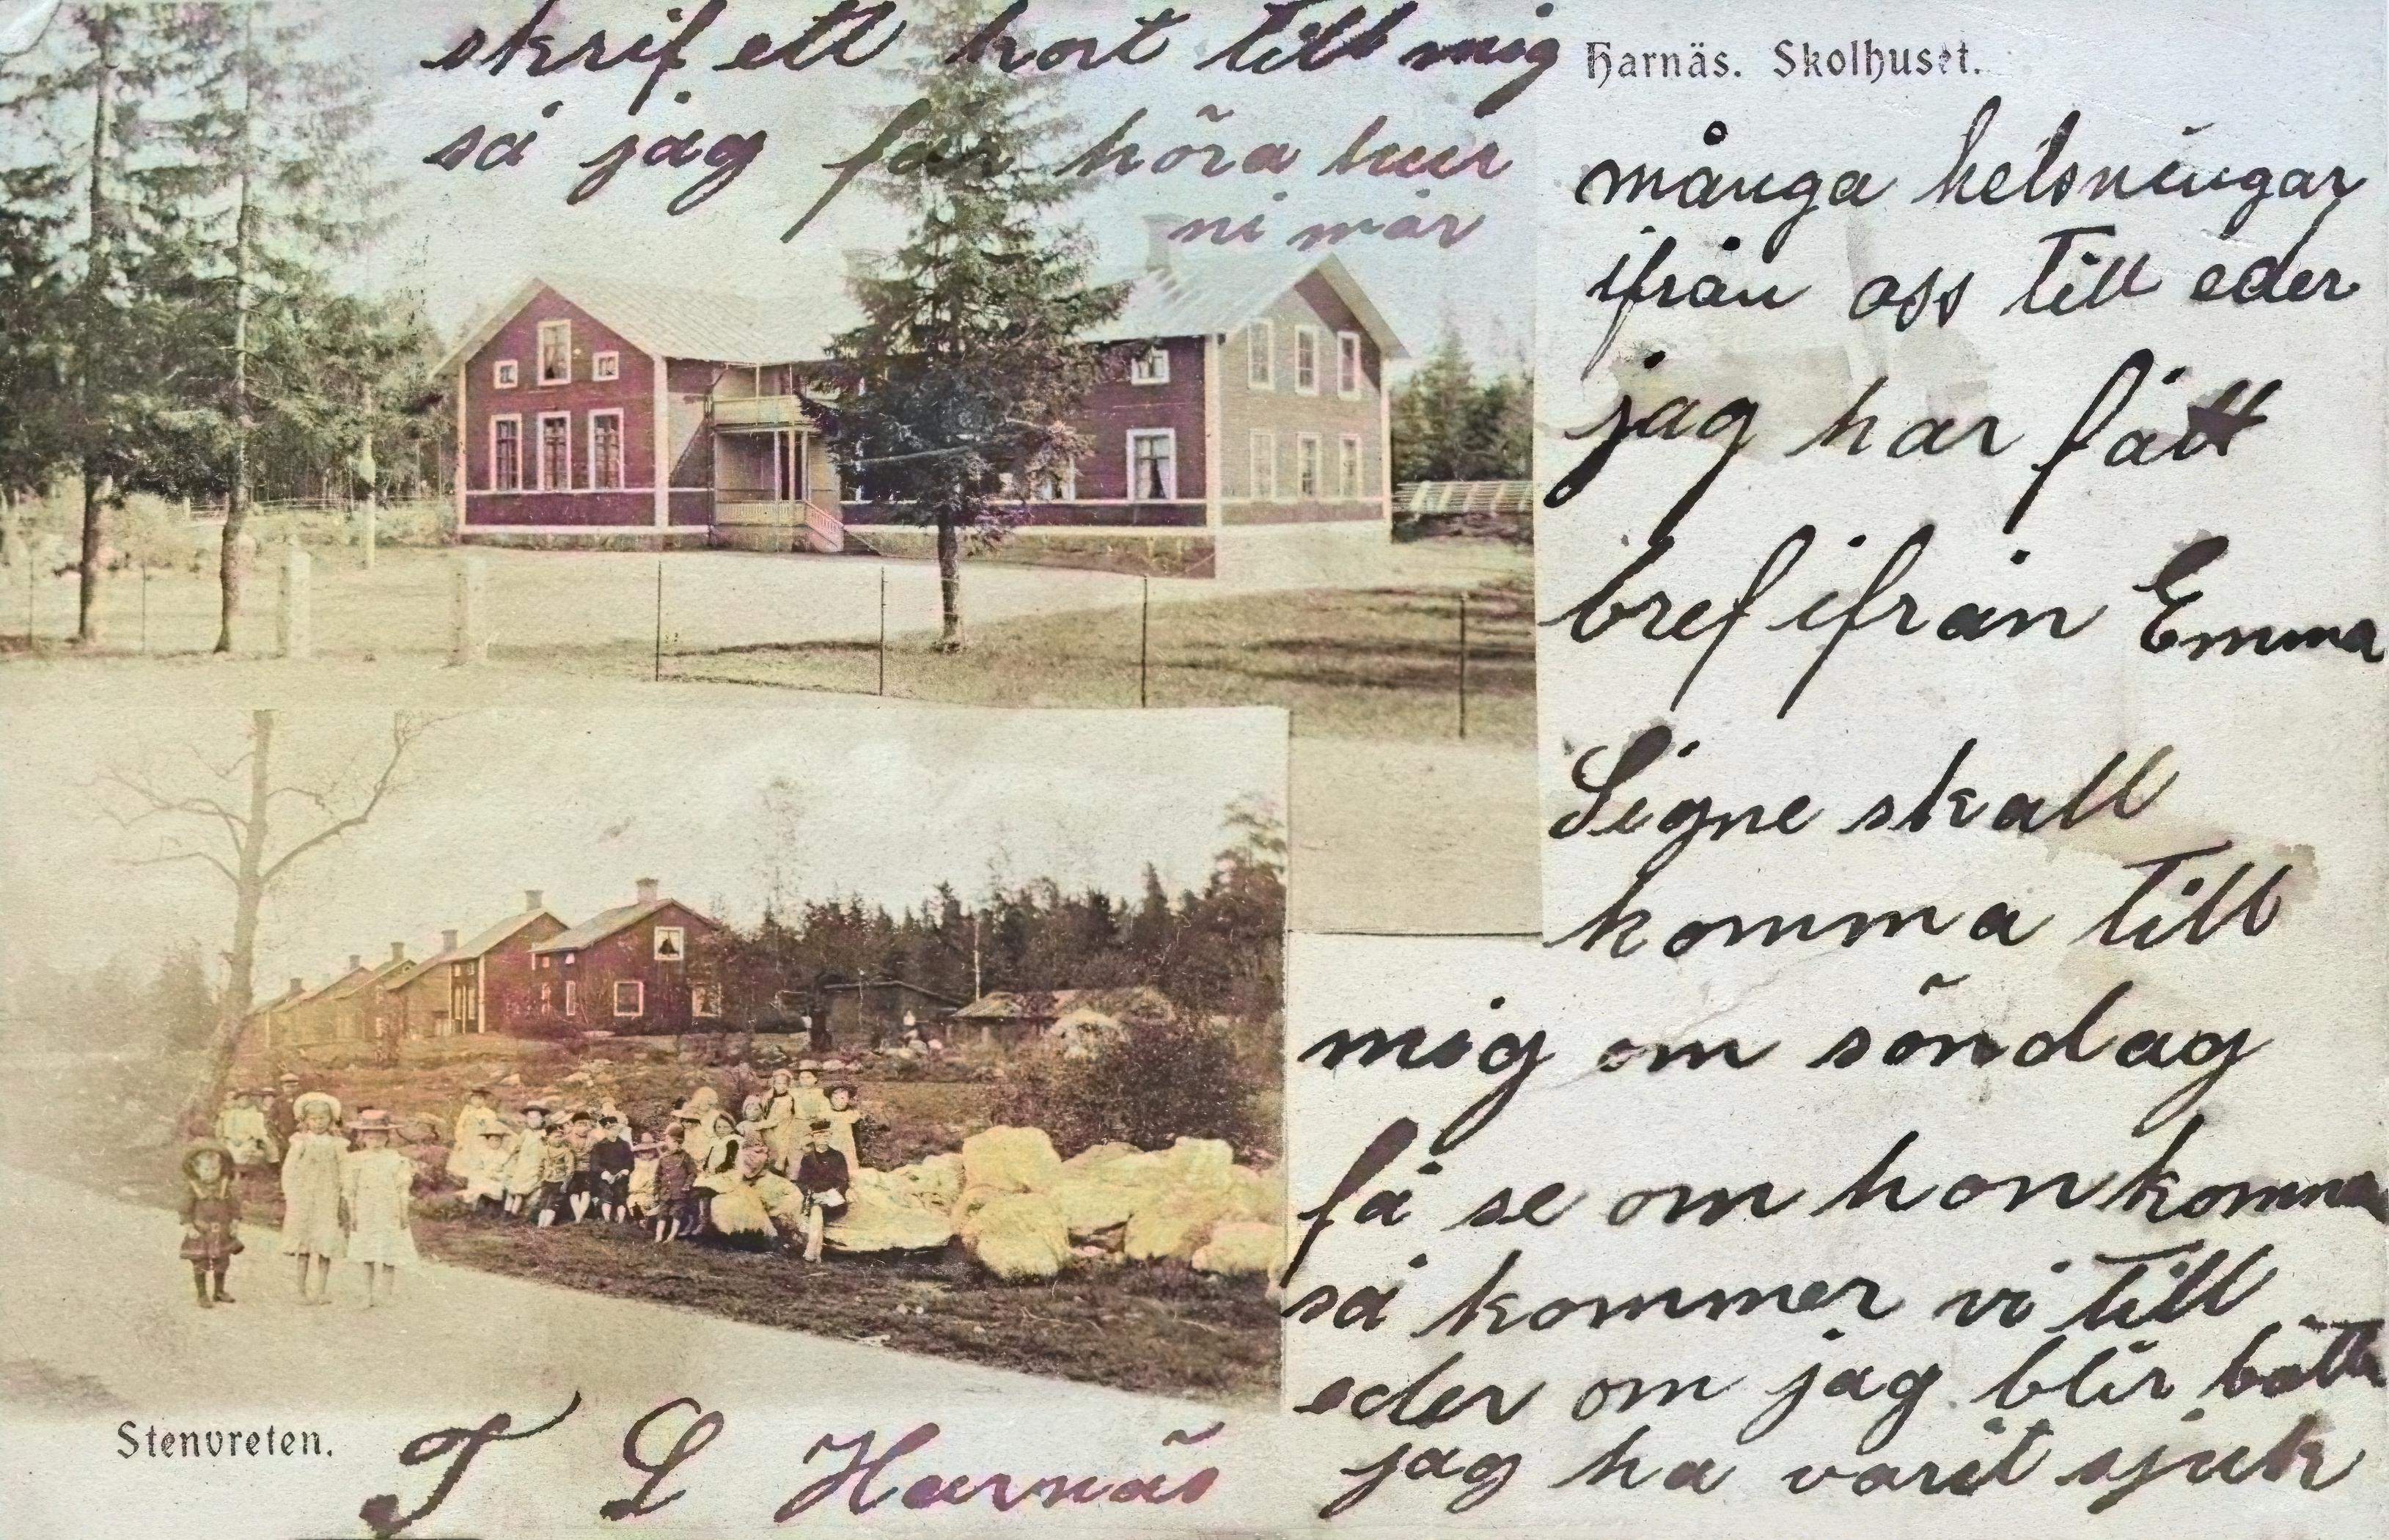 Harnäs. Skolhuset.
många helsningar
ifrån oss till eder
jag har fått
bref ifrån Emma
Signe skall
komma till
mig om söndag
få se om hon komma
så kommer vi till
eder om jag blir bättr
jag ha varit sjuk
skrif ett kort till mig
så jag får höra hur
ni mår
Stenvreten.
T L Harnäs